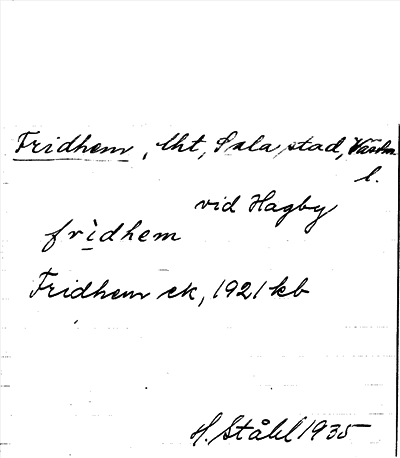 Fridhem, lht, Sala stad, Västm.
l.
vid Hagby
frìdhem
Fridhem ek, 1921 kb
H. Ståhl 1935